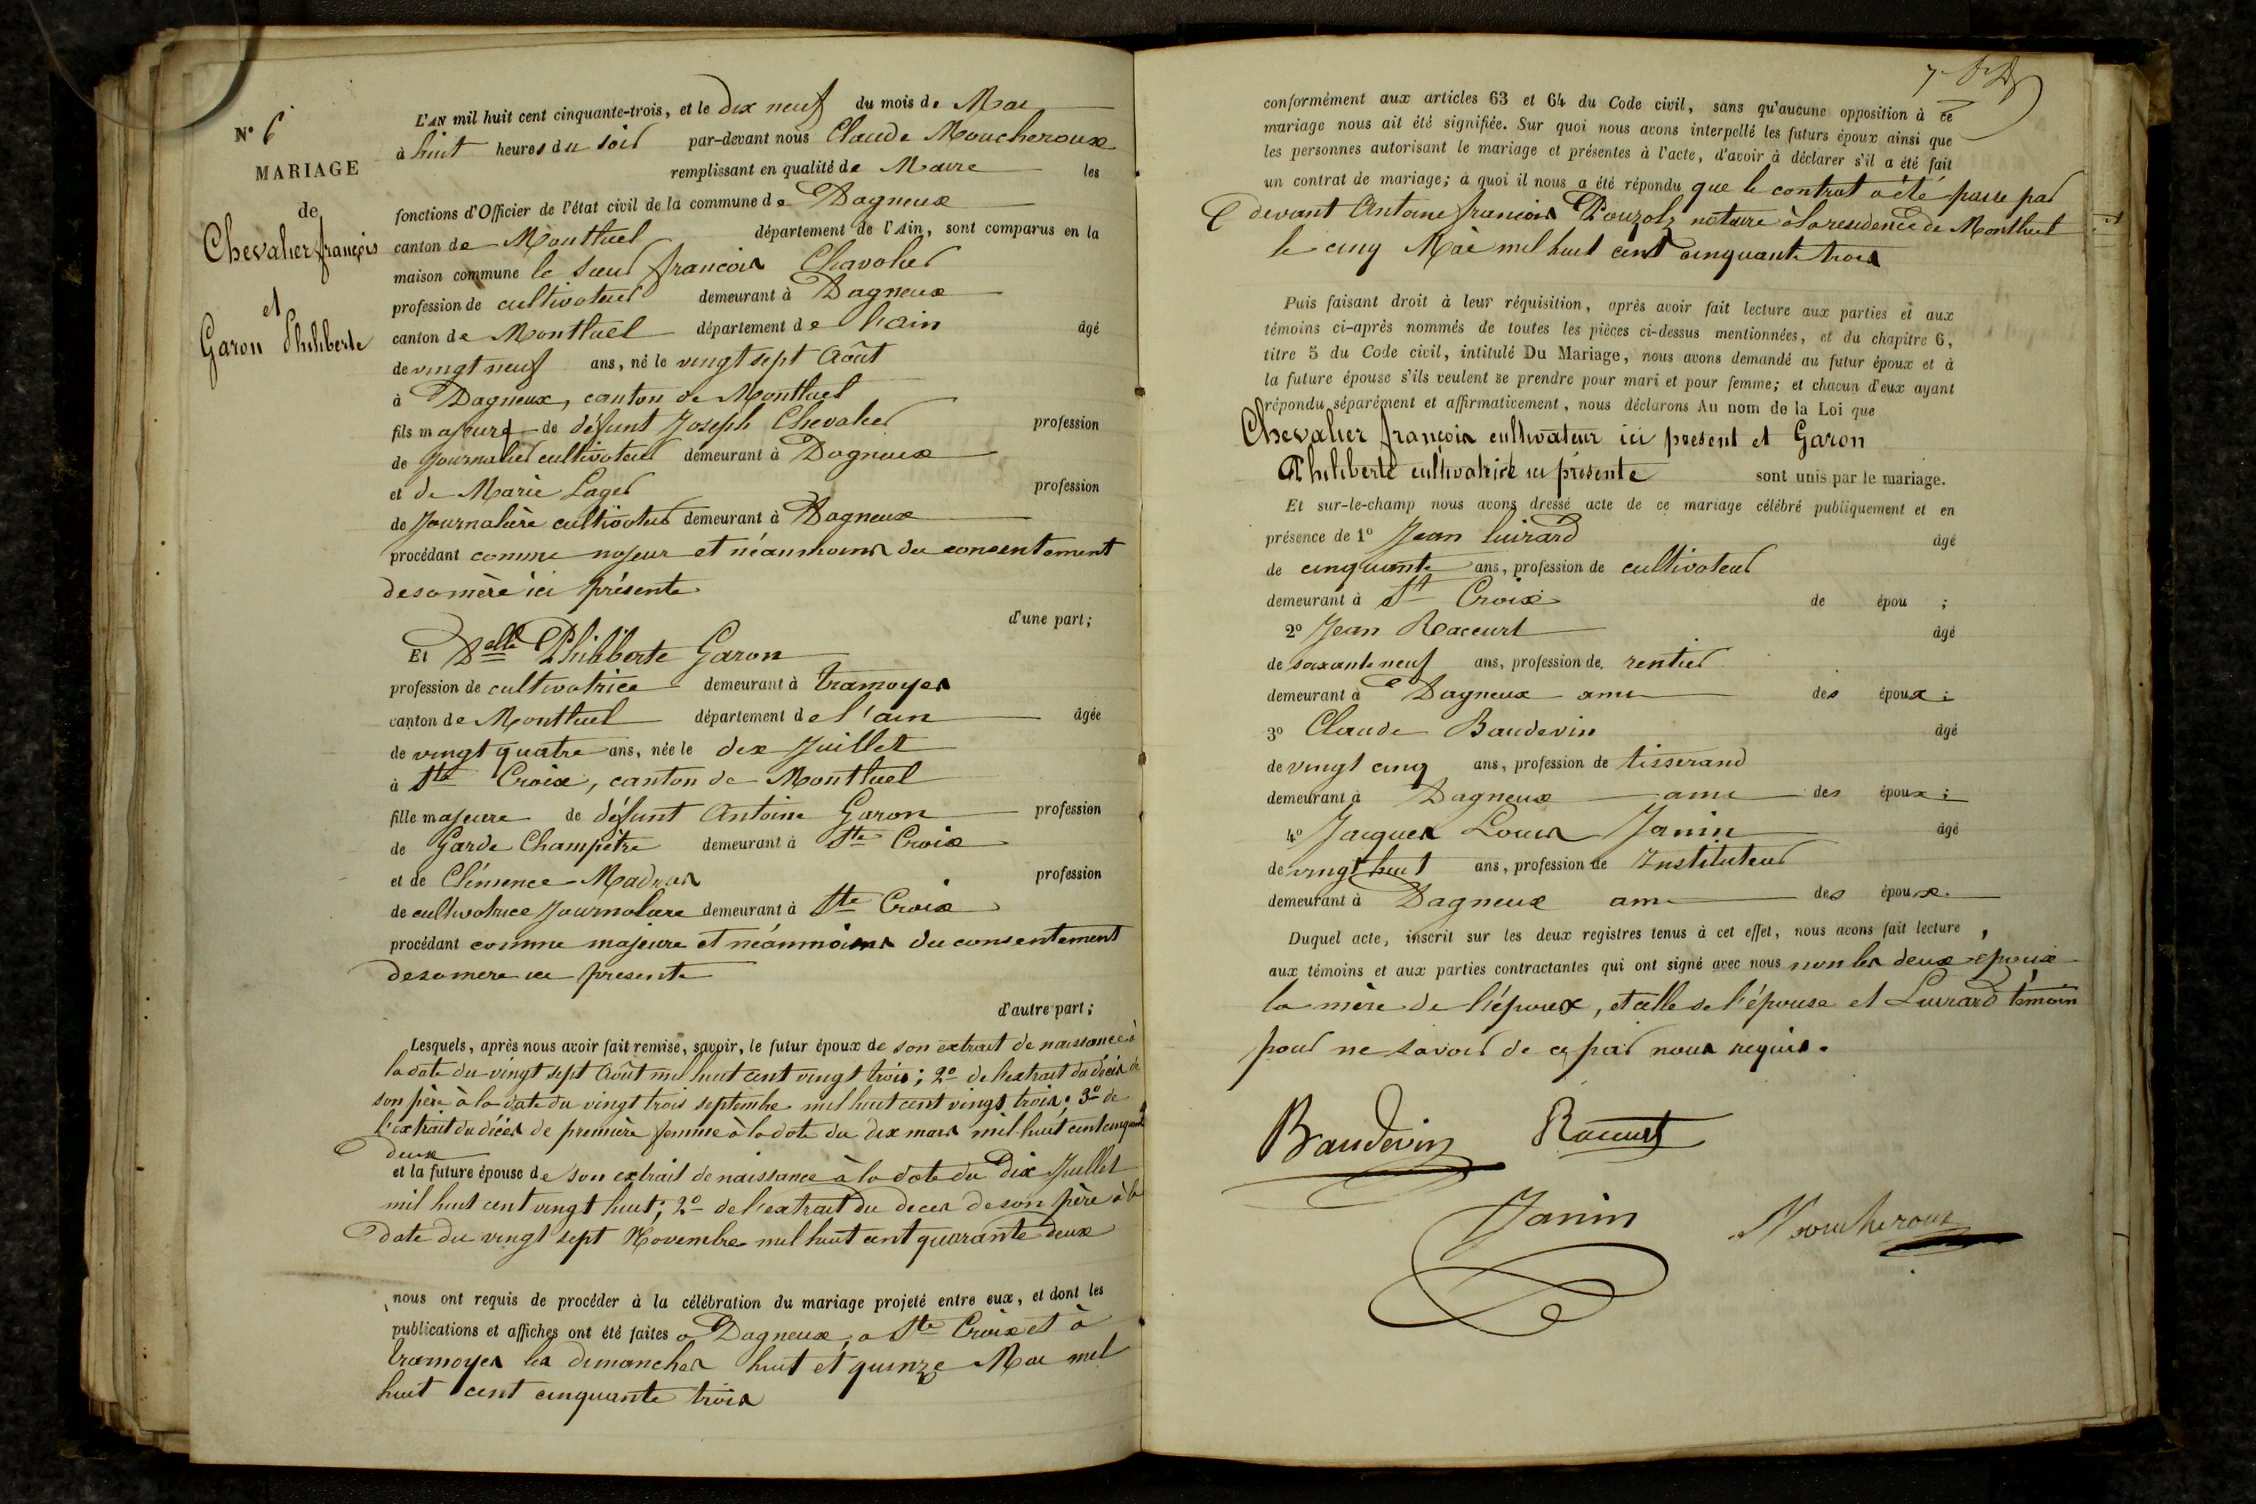 N° 6
MARIAGE
de
Chevalier françois
et
Garon Philiberte
L'AN mil huit cent cinquante-trois, et le dix neuf du mois de Mai
à huit heures du soir par-devant nous Claude Moucheroux
remplissant en qualité de Maire les
fonctions d'Officier de l'état civil de la commune de Dagneux
canton de Montluel département de l'Ain, sont comparus en la
maison commune le sieur françois Chavalier
profession de cultivateur demeurant à Dagneux
canton de Montluel département de l'ain âgé
de vingt neuf ans, né le vingt sept Août
à Dagneux, canton de Montluel
fils majeur de défunt Joseph Chevalier profession
de Journalier cultivateur demeurant à Dagneux
et de Marie Lager profession
de Journalière cultivateur demeurant à Dagneux
procédant comme majeur et néanmoins du consentement
de sa mère ici présente
d'une part;
Et Delle Philiberte Garon
profession de cultivatrice demeurant à tramoyes
canton de Montluel département de l'ain âgée
de vingt quatre ans, née le dix Juillet
à Ste Croix, canton de Montluel
fille majeure de défunt Antoine Garon profession
de Garde Champêtre demeurant à Ste Croix
et de Clémence Madras profession
de cultivatrice Journalière demeurant à Ste Croix
procédant comme majeure et néanmoins du consentement
de sa mere ici presente
d'autre part;
Lesquels, après nous avoir fait remise, savoir, le futur époux de son extrait de naissance à
la date du vingt sept Août mil huit cent vingt trois; 2° de l'extrait du décès de
son père à la date du vingt trois septembre mil huit cent vingt trois; 3° de
l'extrait du décès de première femme à la date du dix mars mil huit cent cinquante
deux
et la future épouse de son extrait de naissance à la date du Dix Juillet
mil huit cent vingt huit; 2° de l'extrait du deces de son père à la
date du vingt sept Novembre mil huit cent quarante deux
nous ont requis de procéder à la célébration du mariage projeté entre eux, et dont les
publications et affiches ont été faites a Dagneux, a Ste Croix et à
tramoyes les dimanches huit et quinze Mai mil
huit cent cinquante trois
conformément aux articles 63 et 64 du Code civil, sans qu'aucune opposition à ce
mariage nous ait été signifiée. Sur quoi nous avons interpellé les futurs époux ainsi que
les personnes autorisant le mariage et présentes à l'acte, d'avoir à déclarer s'il a été fait
un contrat de mariage; à quoi il nous a été répondu que le contrat a été passe par
devant Antoine françois Pouzols notaire à la residence de Montluel
le cinq Mai mil huit cent cinquante trois
Puis faisant droit à leur réquisition, après avoir fait lecture aux parties et aux
témoins ci-après nommés de toutes les pièces ci-dessus mentionnées, et du chapitre 6,
titre 5 du Code civil, intitulé Du Mariage, nous avons demandé au futur époux et à
la future épouse s'ils veulent se prendre pour mari et pour femme; et chacun d'eux ayant
répondu séparément et affirmativement, nous déclarons Au nom de la Loi que
Chevalier françois cultivateur ici present et Garon
Philiberte cultivatrice ici présente sont unis par le mariage.
Et sur-le-champ nous avons dressé acte de ce mariage célébré publiquement et en
présence de 1° Jean Luirard âgé
de cinquante ans, profession de cultivateur
demeurant à Ste Croix de épou ;
2° Jean Raccurt âgé
de soixante neuf ans, profession de rentier
demeurant à Dagneux ami des époux;
3° Claude Baudevin âgé
de vingt cinq ans, profession de tisserand
demeurant à Dagneux ami des époux;
4° Jacques Louis Janin âgé
de vingt huit ans, profession de Instituteur
demeurant à Dagneux ami des époux.
Duquel acte, inscrit sur les deux registres tenus à cet effet, nous avons fait lecture
aux témoins et aux parties contractantes qui ont signé avec nous non les deux époux
la mère de l'époux, et celle de l'épouse et Luirard témoin
pour ne savoir de ce par nous requis.
Baudevin Raccurt
Janin Moucheroux